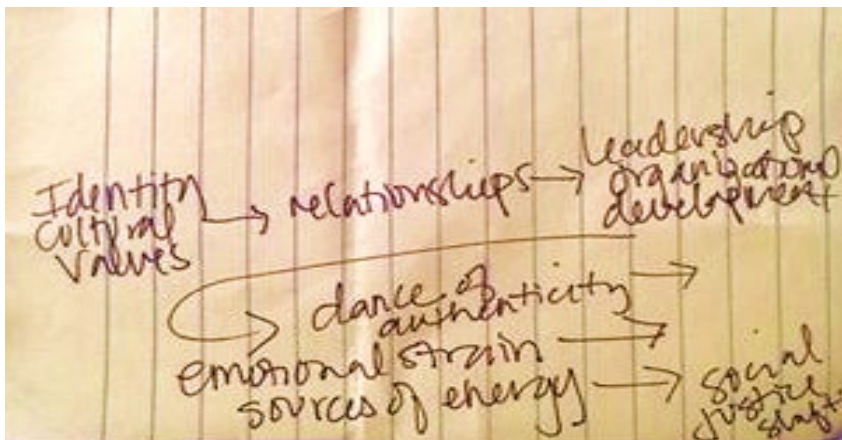 Identity
cultural
values
→ relationships →
leadership
organizational
development
dance of
authenticity →
emotional strain →
sources of energy →
social
justice